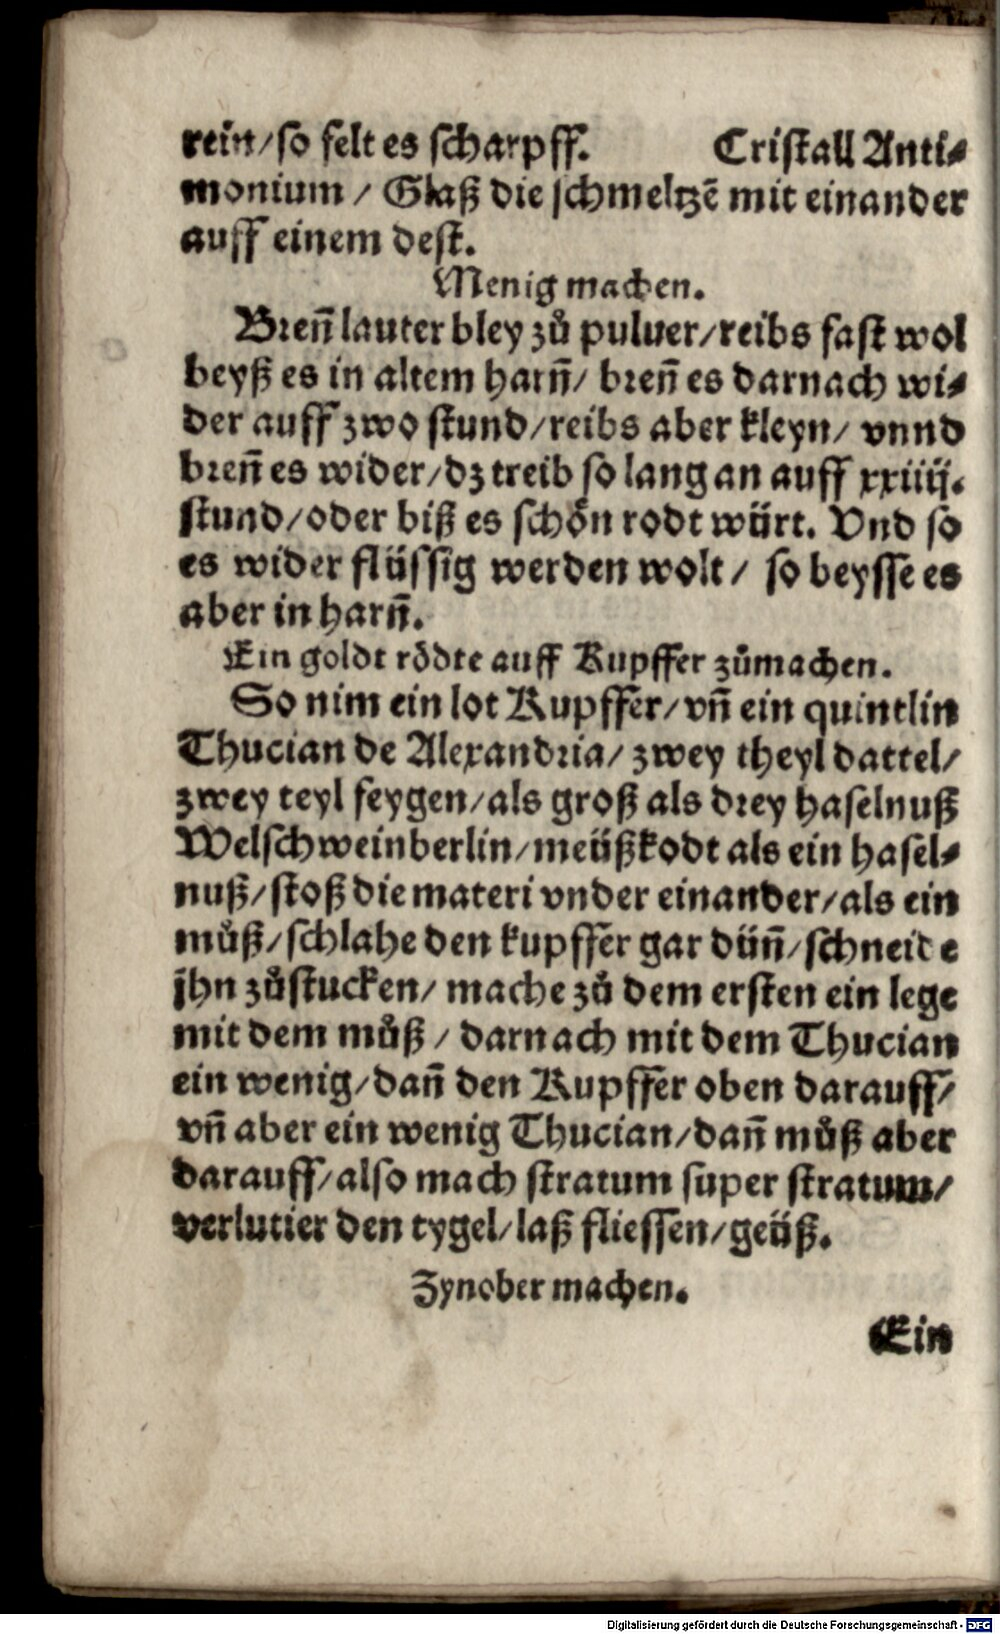 rein/so felt es scharpff. Cristall Anti-
monium / Glaß die schmeltzē mit einander
auff einem dest.
Menig machen.
Breñ lauter bley zů puluer/reibs fast wol
beyß es in altem harñ/ breñ es darnach wi-
der auff zwo stund/reibs aber kleyn/ vnnd
breñ es wider/dz treib so lang an auff xxiiij.
stund/oder biß es schön rodt würt. Vnd so
es wider flüssig werden wolt / so beysse es
aber in harñ.
Ein goldt rödte auff Kupffer zůmachen.
So nim ein lot Kupffer/vñ ein quintlin
Thucian de Alexandria/ zwey theyl dattel/
zwey teyl feygen/als groß als drey haselnuß
Welsch weinberlin/meüßkodt als ein hasel-
nuß/stoß die materi vnder einander/als ein
můß/schlahe den kupffer gar düñ/schneide
jhn zůstucken/ mache zů dem ersten ein lege
mit dem můß / darnach mit dem Thucian
ein wenig/dañ den Kupffer oben darauff/
vñ aber ein wenig Thucian/dañ můß aber
darauff/also mach stratum super stratum/
verlutier den tygel/laß fliessen/geüß.
Zynober machen.
Ein
Digitalisierung gefördert durch die Deutsche Forschungsgemeinschaft - DFG